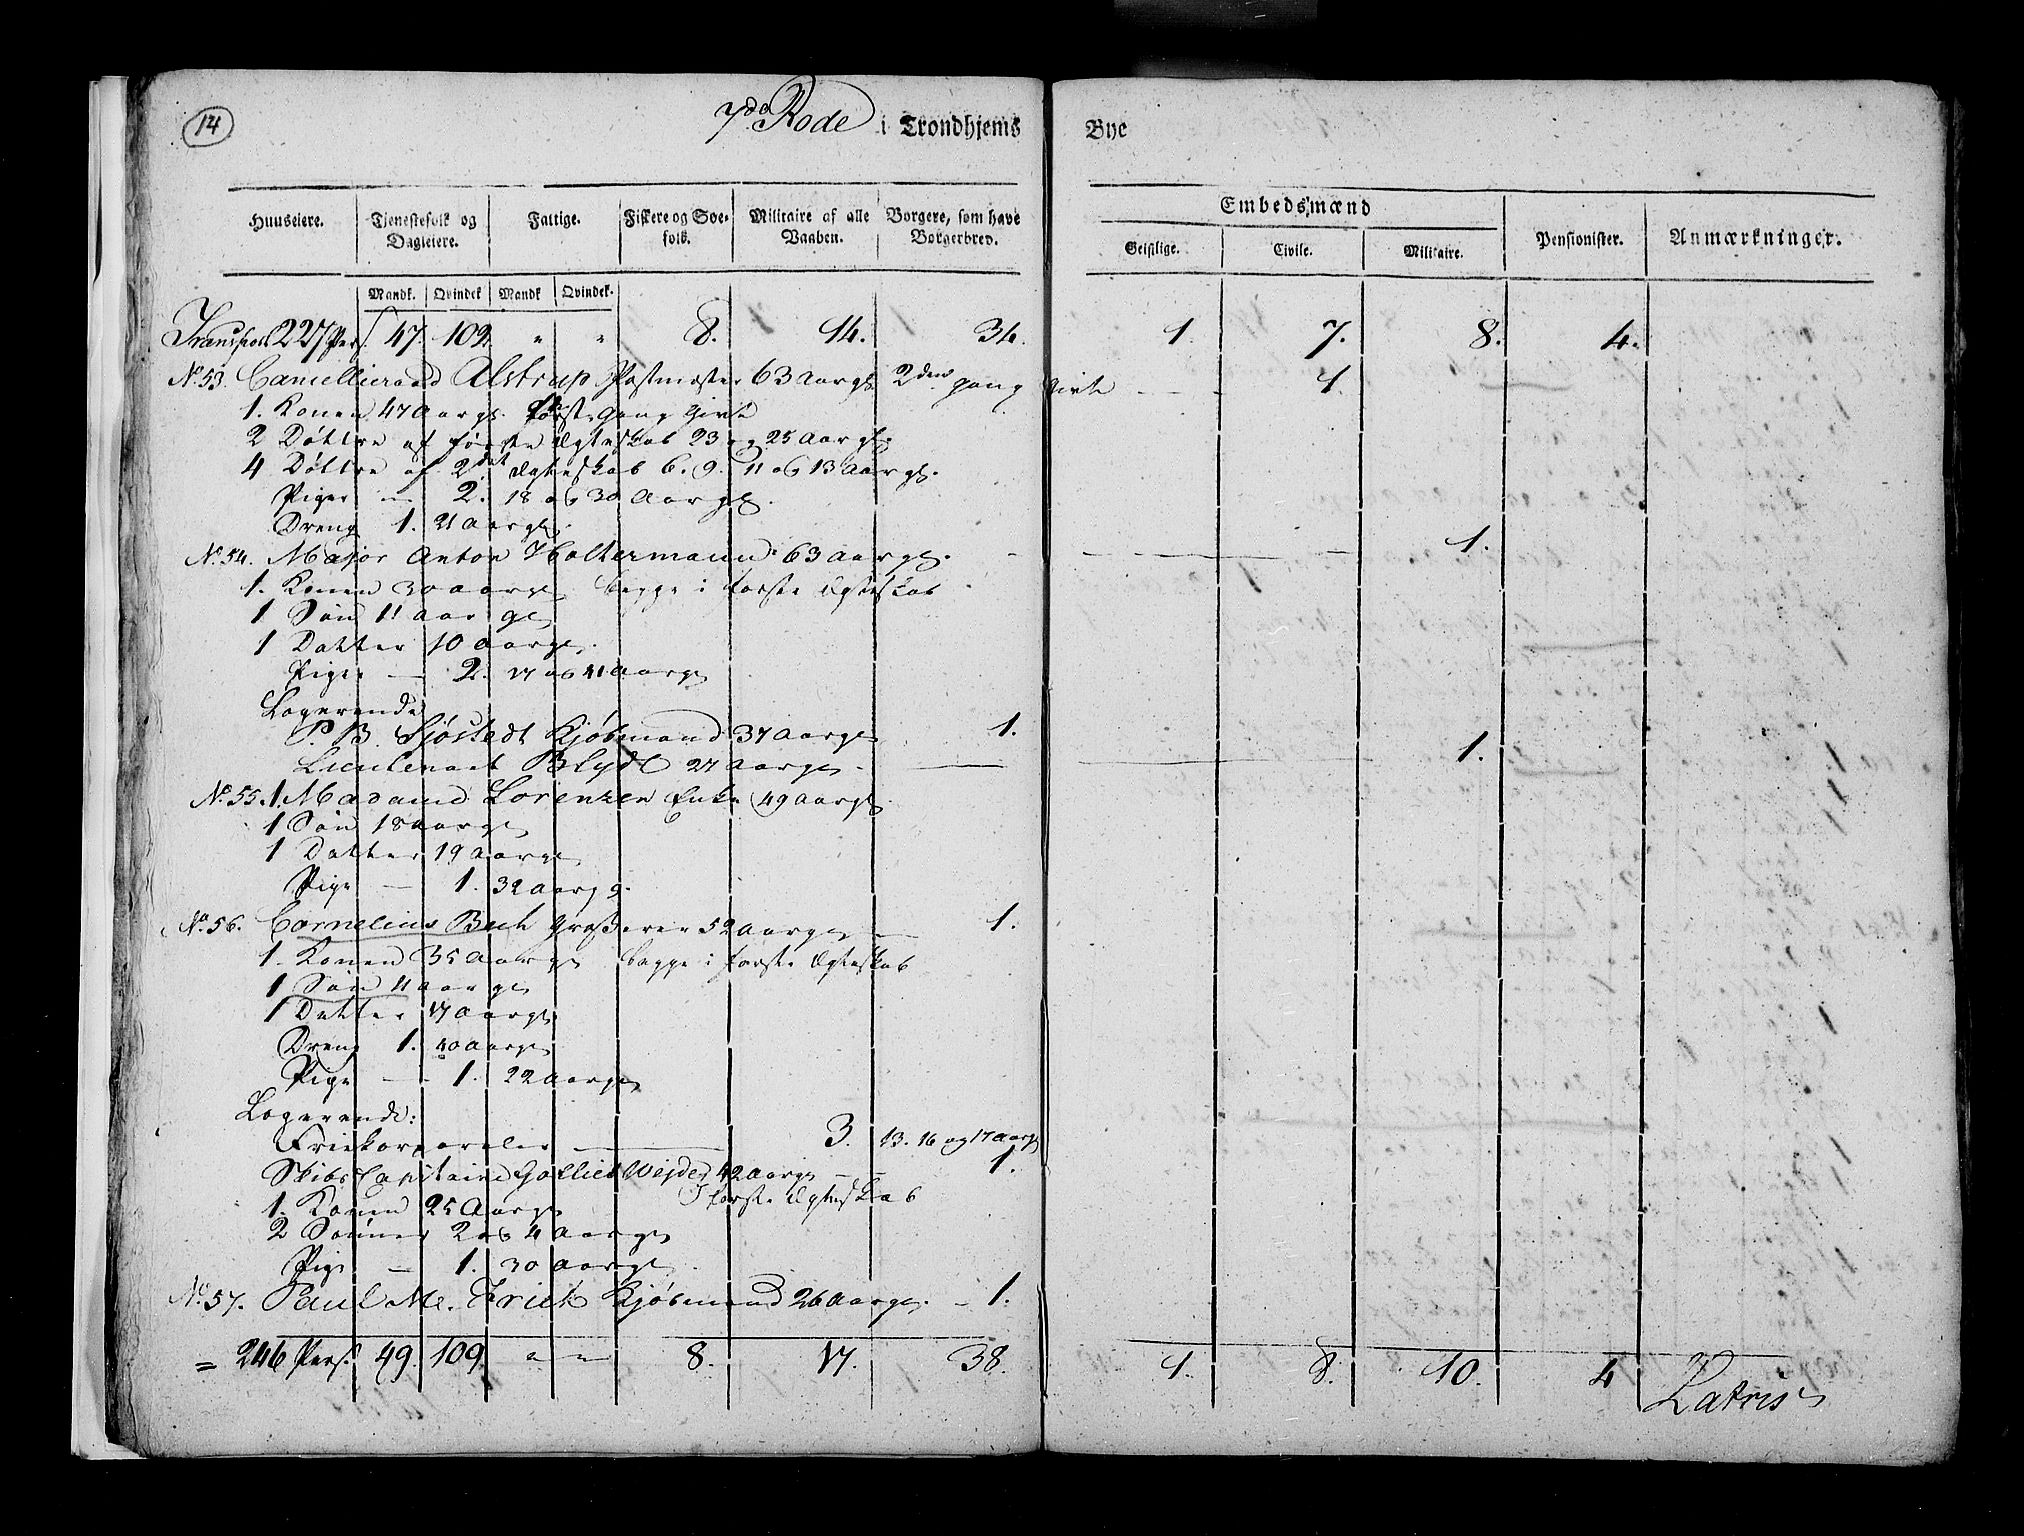 14
7de Rode i Trondhjems Bye
Huuseiere. Tjenestefolk og Dagleiere. Fattige. Fiskere og Søefolk. Militaire af alle Vaaben. Borgere, som have Borgerbrev. Embedsmænd Pensionister. Anmærkninger.
Geistlige. Civile. Militaire.
Mandk. Qvindek Mandk Qvindek.
Transport 227 Pers. 47. 109. " " 8. 14. 34. 1. 7. 8. 4.
No. 53. Cancellieraad Alstrup Postmester 63 Aar gl. 2den gang givte - - - 1.
1. Konen 47 Aar gl. første gang givt
2 Døttre af første Ægteskab 23 og 25 Aar gl.
4 Døttre af 2det Ægteskab 6. 9. 11 og 13 Aar gl.
Piger — 2. 18 og 30 Aar gl.
Dreng 1. 21 Aar gl.
No. 54. Major Anton Holtermann 63 Aar gl. - 1.
1. Konen 30 Aar gl. begge i første Ægteskab
1 Søn 11 Aar gl
1 Datter 10 Aar gl.
Piger — 2. 17 og 41 Aar gl
Logerende
P. B. Sjöstedt Kjøbmand 37 Aar gl 1.
Lieutenant Blydt 27 Aar gl. — 1.
No. 55. 1. Madame Lorenzen Enke 49 Aar gl.
1 Søn 18 Aar gl
1 Datter 19 Aar gl
Pige — 1. 32 Aar g.
No. 56. Cornelius Buch Grosserer 52 Aar gl — 1.
1. Konen 35 Aar gl begge i første Ægteskab
1 Søn 11 Aar gl
1 Datter 17 Aar gl
Dreng 1. 40 Aar gl
Pige — 1. 22 Aar gl
Logerende:
Friekorporaler — 3. 13. 16 og 17 Aar gl
Skibs Capitaine Gotlieb Wejder 42 Aar gl — 1.
1. Konen 25 Aar gl I første Ægteskab
2 Sønner 2 og 4 Aar gl
Pige — 1. 30 Aar gl.
No. 57. Paul M. Trick Kjøbmand 26 Aar gl. - 1.
= 246 Pers. 49. 109. " " 8. 17. 38. 1. 8. 10. 4